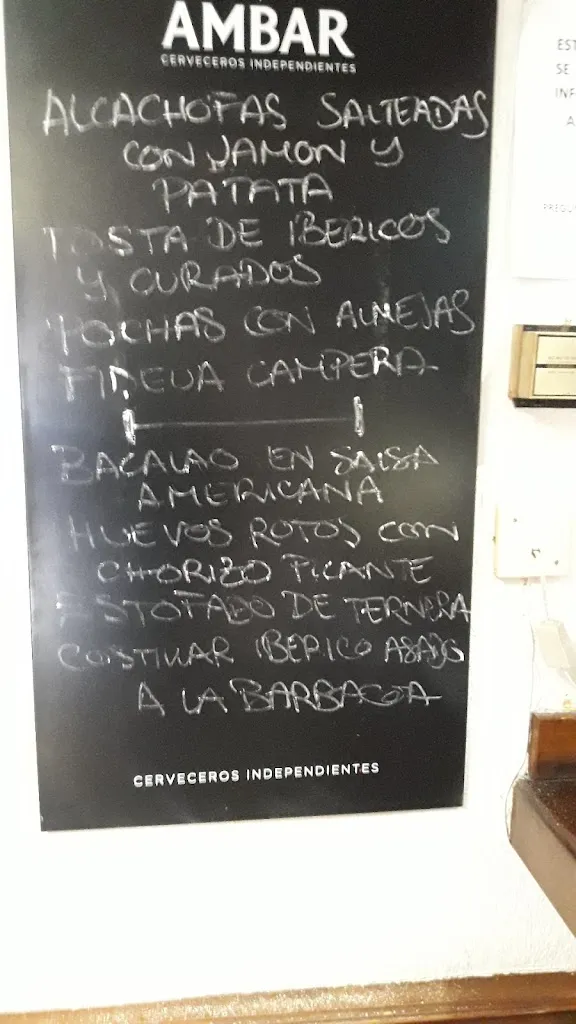 AMBAR
CERVECEROS INDEPENDIENTES
ALCACHOFAS SALTEADAS
CON JAMON Y
PATATA
TOSTA DE IBERICOS
Y CURADOS
POCHAS CON ALMEJAS
FIDEUA CAMPERA
BACALAO EN SALSA
AMERICANA
HUEVOS ROTOS CON
CHORIZO PICANTE
ESTOFADO DE TERNERA
COSTILLAR IBERICO ASADO
A LA BARBACOA
CERVECEROS INDEPENDIENTES
EST
SE
INF
A
PREGUN